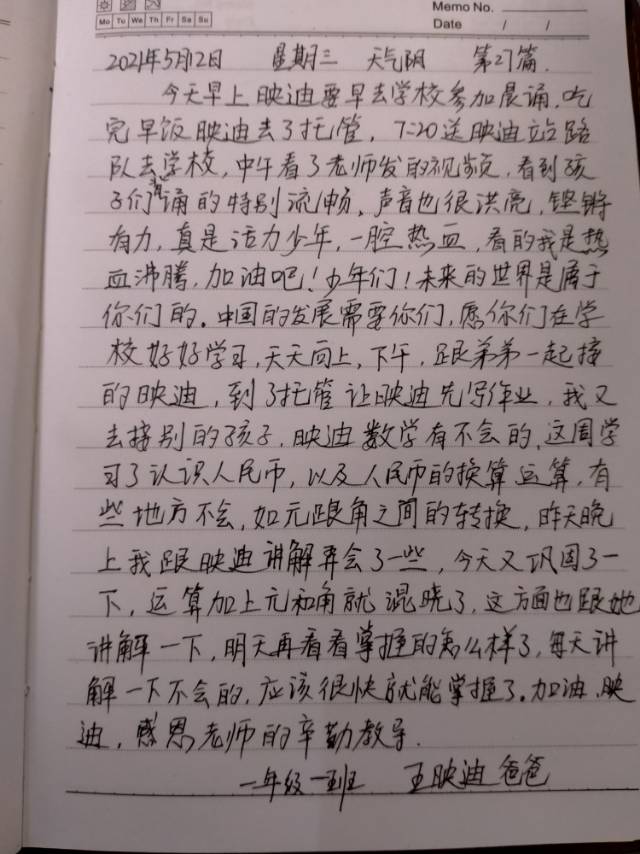 Memo No.
Mo Tu We Th Fr Sa Su
Date / /
2021年5月12日 星期三 天气阴 第27篇.
今天早上映迪要早去学校参加晨诵,吃
完早饭映迪去了托管,7:20送映迪站路
队去学校,中午看了老师发的视频,看到孩
子们诵的特别流畅。声音也很洪亮,铿锵
有力,真是活力少年,一腔热血,看的我是热
血沸腾,加油吧!少年们!未来的世界是属于
你们的。中国的发展需要你们,愿你们在学
校好好学习,天天向上,下午,跟弟弟一起接
的映迪,到了托管让映迪先写作业,我又
去接别的孩子.映迪数学有不会的,这周学
习了认识人民币,以及人民币的换算运算,有
些地方不会,如元跟角之间的转换,昨天晚
上我跟映迪讲解弄会了一些,今天又巩固了一
下,运算加上元和角就混晓了,这方面也跟她
讲解一下,明天再看看掌握的怎么样了,每天讲
解一下不会的,应该很快就能掌握了。加油.映
迪,感恩老师的辛勤教导.
一年级一班 王映迪爸爸